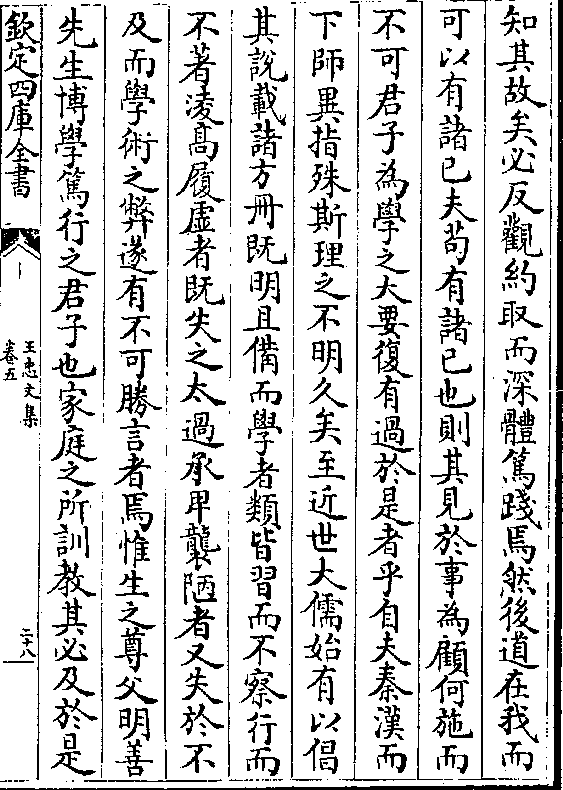 知其故矣必反觀約取而深體篤踐焉然後道在我而
可以有諸已夫茍有諸已也則其見於事為顧何施而
不可君子為學之大要復有過於是者乎自夫秦漢而
下師異指殊斯理之不明久矣至近世大儒始有以倡
其說載諸方冊既明且備而學者類皆習而不察行而
不著淩髙履虚者既失之太過承卑襲陋者又失於不
及而學術之弊遂有不可勝言者焉惟生之尊父明善
先生博學篤行之君子也家庭之所訓教其必及於是
欽定四庫全書
王忠文集
卷五
二十八